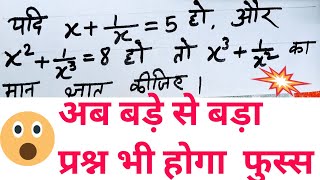 यदि x + 1/x = 5 हो, और
x² + 1/x³ = 8 हो तो x³ + 1/x² का
मान ज्ञात कीजिए।
अब बड़े से बड़ा
प्रश्न भी होगा फुस्स